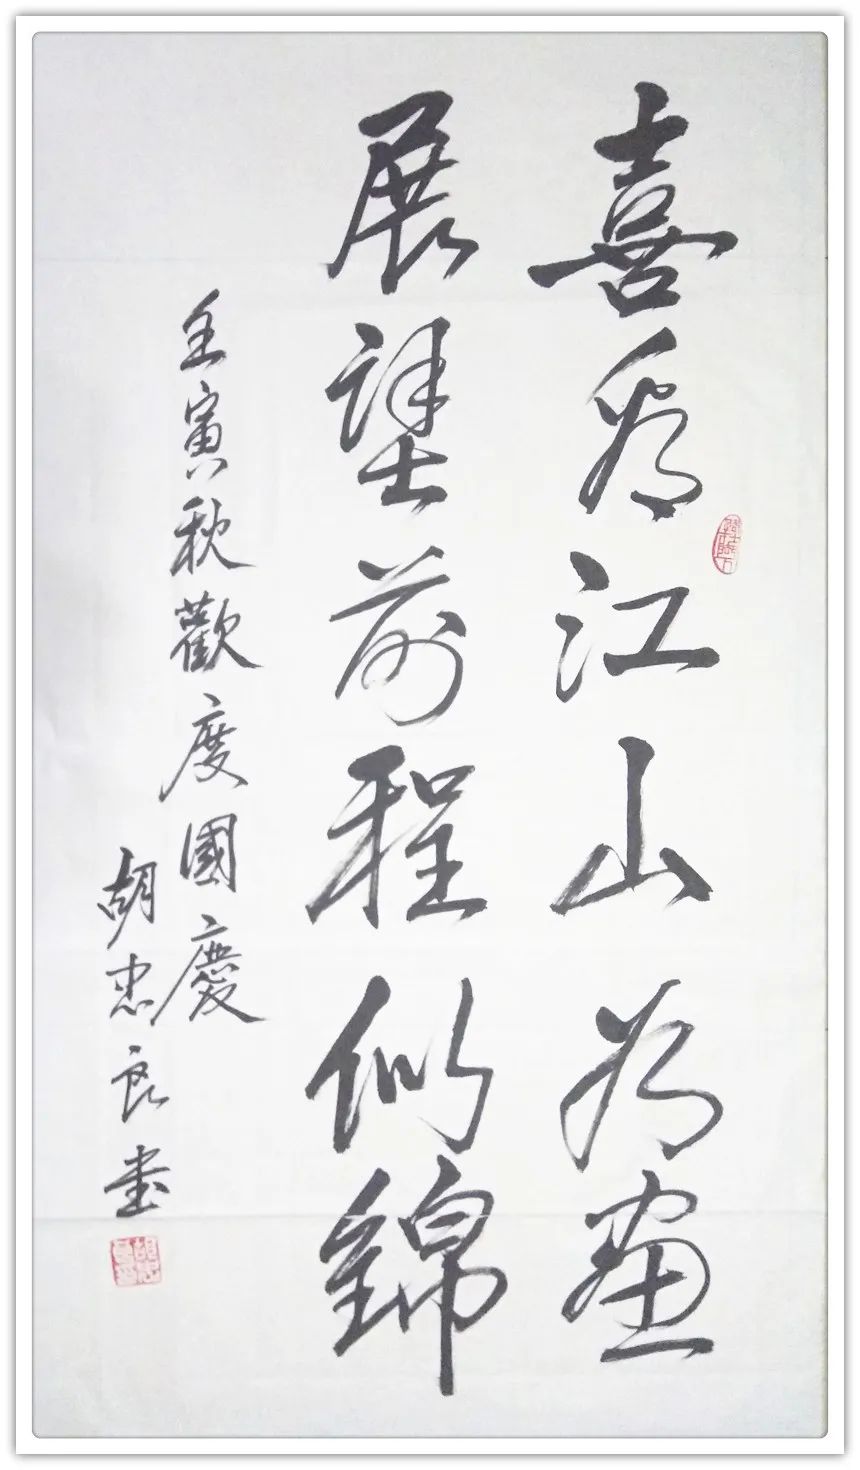 喜看江山为畫
展望前程似錦
壬寅秋歡度國慶
胡忠良書